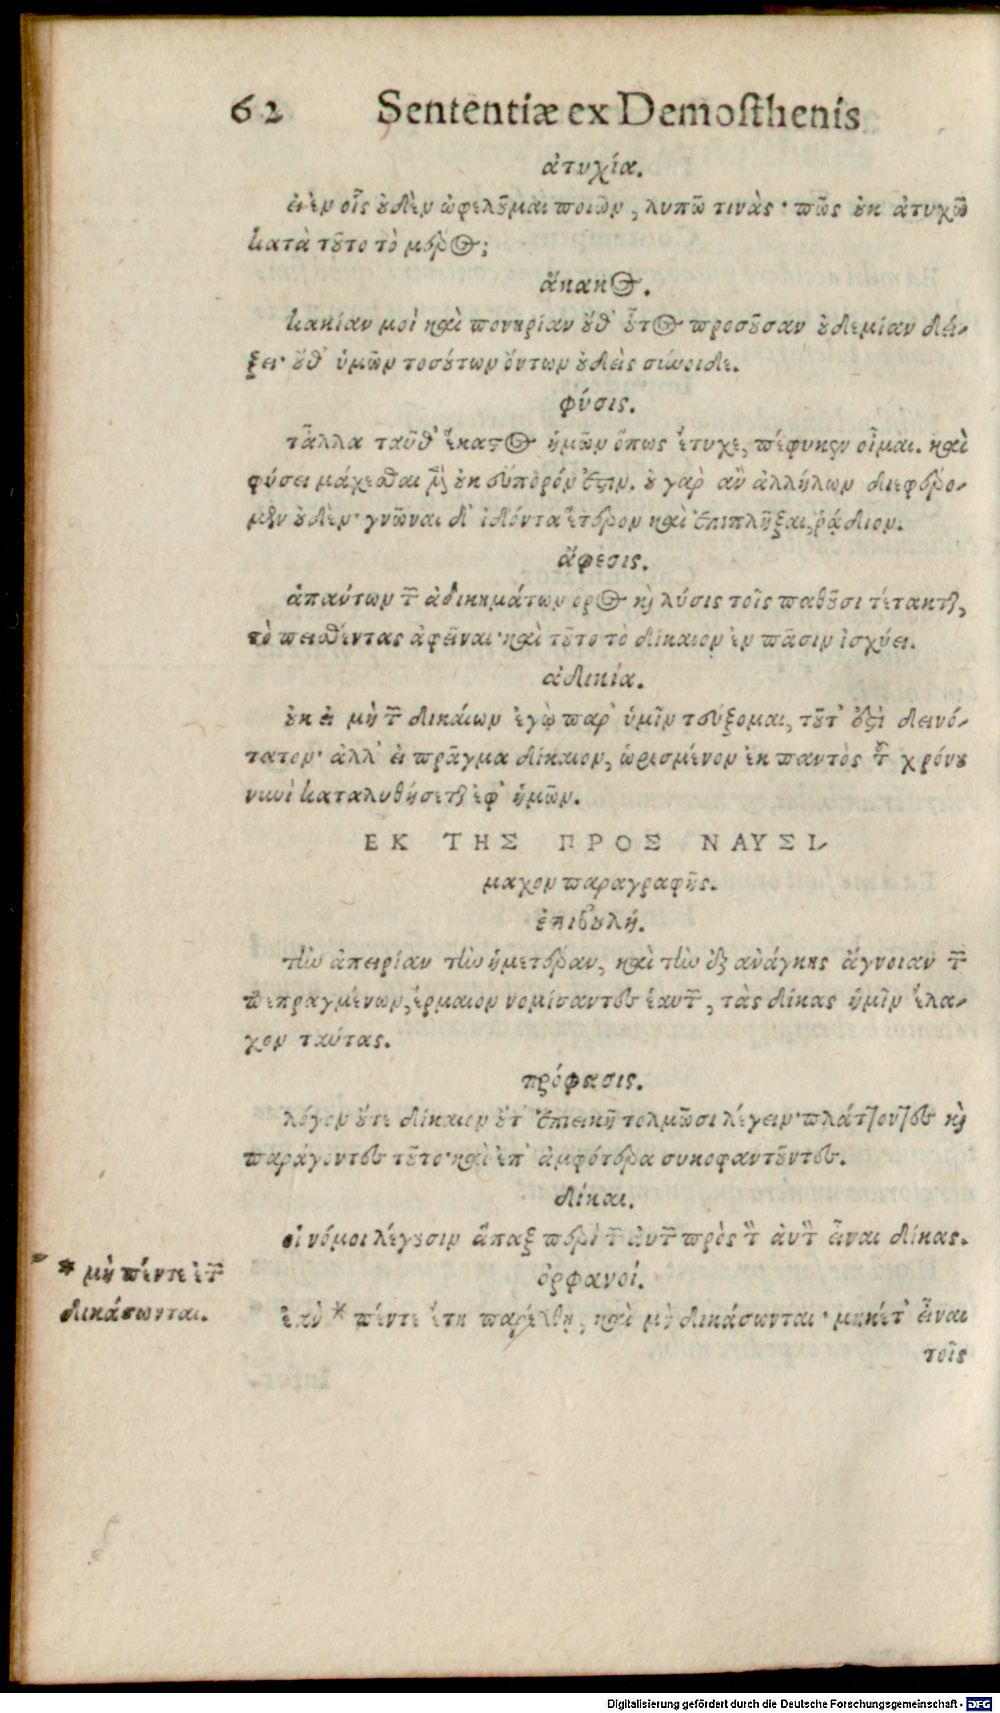 62 Sententiæ ex Demosthenis
ἀτυχία.
εἰ ἐν οἷς οὐδὲν ὠφελοῦμαι ποιῶν, λυπῶ τινὰς· πῶς οὐκ ἀτυχῶ
κατὰ τοῦτο τὸ μέρος;
ἄκακος.
κακίαν μοὶ καὶ πονηρίαν οὔθ' οὗτος προσοῦσαν οὐδεμίαν δεί-
ξει· οὔθ' ὑμῶν τοσούτων ὄντων οὐδεὶς σύνοιδε.
φύσις.
τἆλλα ταῦθ' ἕκαστος ἡμῶν ὅπως ἔτυχε, πέφυκεν οἶμαι. καὶ
φύσει μάχεσθαι μὲν οὐκ εὔπορόν ἐστιν. οὐ γὰρ ἂν ἀλλήλων διεφέρο-
μεν οὐδέν· γνῶναι δ' ἰδόντα ἕτερον καὶ ἐπιπλῆξαι, ῥᾴδιον.
ἄφεσις.
ἁπάντων τῶν ἀδικημάτων ὅρος καὶ λύσις τοῖς παθοῦσι τέτακται,
τὸ πεισθέντας ἀφεῖναι· καὶ τοῦτο τὸ δίκαιον ἐν πᾶσιν ἰσχύει.
ἀδικία.
οὐκ εἰ μὴ τῶν δικαίων ἐγὼ παρ' ὑμῖν τεύξομαι, τοῦτ' ἐστὶ δεινό-
τατον· ἀλλ' εἰ πρᾶγμα δίκαιον, ὡρισμένον ἐκ παντὸς τοῦ χρόνου
νυνὶ καταλυθήσεται ἐφ' ἡμῶν.
ΕΚ ΤΗΣ ΠΡΟΣ ΝΑΥΣΙ-
μαχον παραγραφῆς.
ἐπιβουλή.
τὴν ἀπειρίαν τὴν ἡμετέραν, καὶ τὴν ἐξ ἀνάγκης ἄγνοιαν τῶν
πεπραγμένων, ἕρμαιον νομίσαντες ἑαυτῶν, τὰς δίκας ἡμῖν ἔλα-
χον ταύτας.
πρόφασις.
λόγον οὔτε δίκαιον οὔτ' ἐπιεικῆ τολμῶσι λέγειν· πλάττοντες καὶ
παράγοντες τοῦτο· καὶ ἐπ' ἀμφότερα συκοφαντοῦντες.
δίκαι.
οἱ νόμοι λέγουσιν ἅπαξ περὶ τῶν αὐτῶν πρὸς τὸν αὐτὸν εἶναι δίκας.
ὀρφανοί.
* μὴ πέντε ἐτῶν
δικάσωνται.
ἐὰν * πέντε ἔτη παρέλθῃ, καὶ μὴ δικάσωνται· μηκέτ' εἶναι
τοῖς
Digitalisierung gefördert durch die Deutsche Forschungsgemeinschaft - DFG